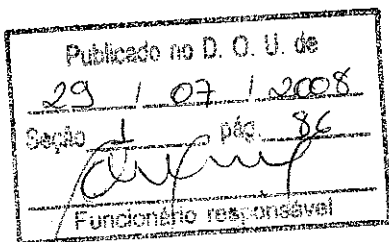 Publicado no D. O. U. de
29 / 07 / 2008
Seção 1 pág. 86
Funcionário responsável